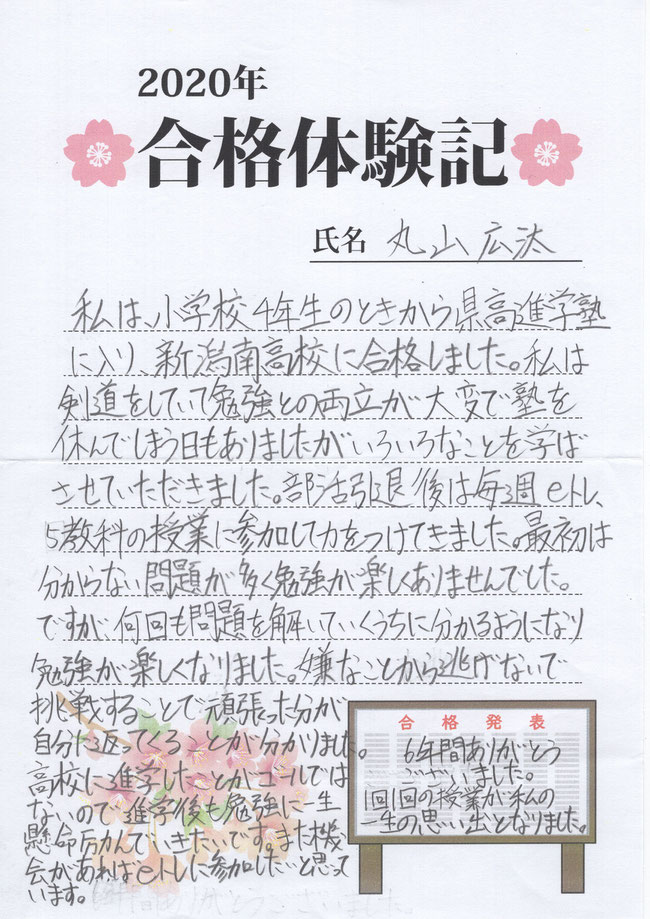 2020年
合格体験記
氏名 丸山 広汰
私は、小学校4年生のときから県高進学塾
に入り、新潟南高校に合格しました。私は
剣道をしていて勉強との両立が大変で塾を
休んでしまう日もありましたがいろいろなことを学ば
させていただきました。部活引退後は毎週eトレ、
5教科の授業に参加して力をつけてきました。最初は
分からない問題が多く勉強が楽しくありませんでした。
ですが、何回も問題を解いていくうちに分かるようになり
勉強が楽しくなりました。嫌なことから逃げないで
挑戦することで頑張った分が
自分に返ってくることが分かりました。
高校に進学したことがゴールでは
ないので進学後も勉強に一生
懸命励んでいきたいです。また機
会があればeトレに参加したいと思って
います。
合格発表
6年間ありがとう
ございました。
1回1回の授業が私の
一生の思い出となりました。